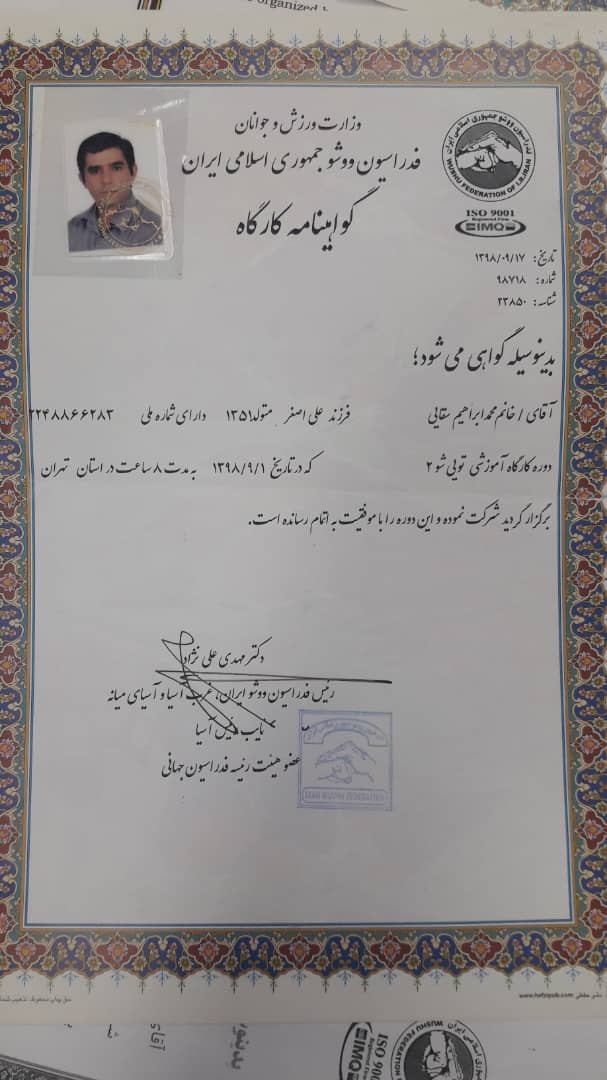 organized
وزارت ورزش و جوانان
فدراسیون ووشو جمهوری اسلامی ایران
گواهینامه کارگاه
فدراسیون ووشو جمهوری اسلامی ایران
WUSHU FEDERATION OF I.R.IRAN
ISO 9001
Registered Firm
IMQ
تاریخ: ۱۳۹۸/۰۹/۱۷
شماره: ۹۸۷۱۸
شناسه: ۲۳۸۵۰
بدینوسیله گواهی می شود؛
آقای / خانم محمدابراهیم سقایی فرزند علی اصغر متولد ۱۳۵۱ دارای شماره ملی ۲۲۴۸۸۶۶۲۸۳
دوره کارگاه آموزشی تویی شو ۲ که در تاریخ ۱۳۹۸/۹/۱ به مدت ۸ ساعت در استان تهران
برگزار گردید شرکت نموده و این دوره را با موفقیت به اتمام رسانده است.
دکتر مهدی علی نژاد
رئیس فدراسیون ووشو ایران، غرب آسیا و آسیای میانه
نایب رئیس آسیا
عضو هیئت رئیسه فدراسیون جهانی
www.hefzipub.com
نشر حفظی
آقای
ISO 900
IMQ
WUSHU FEDERATION